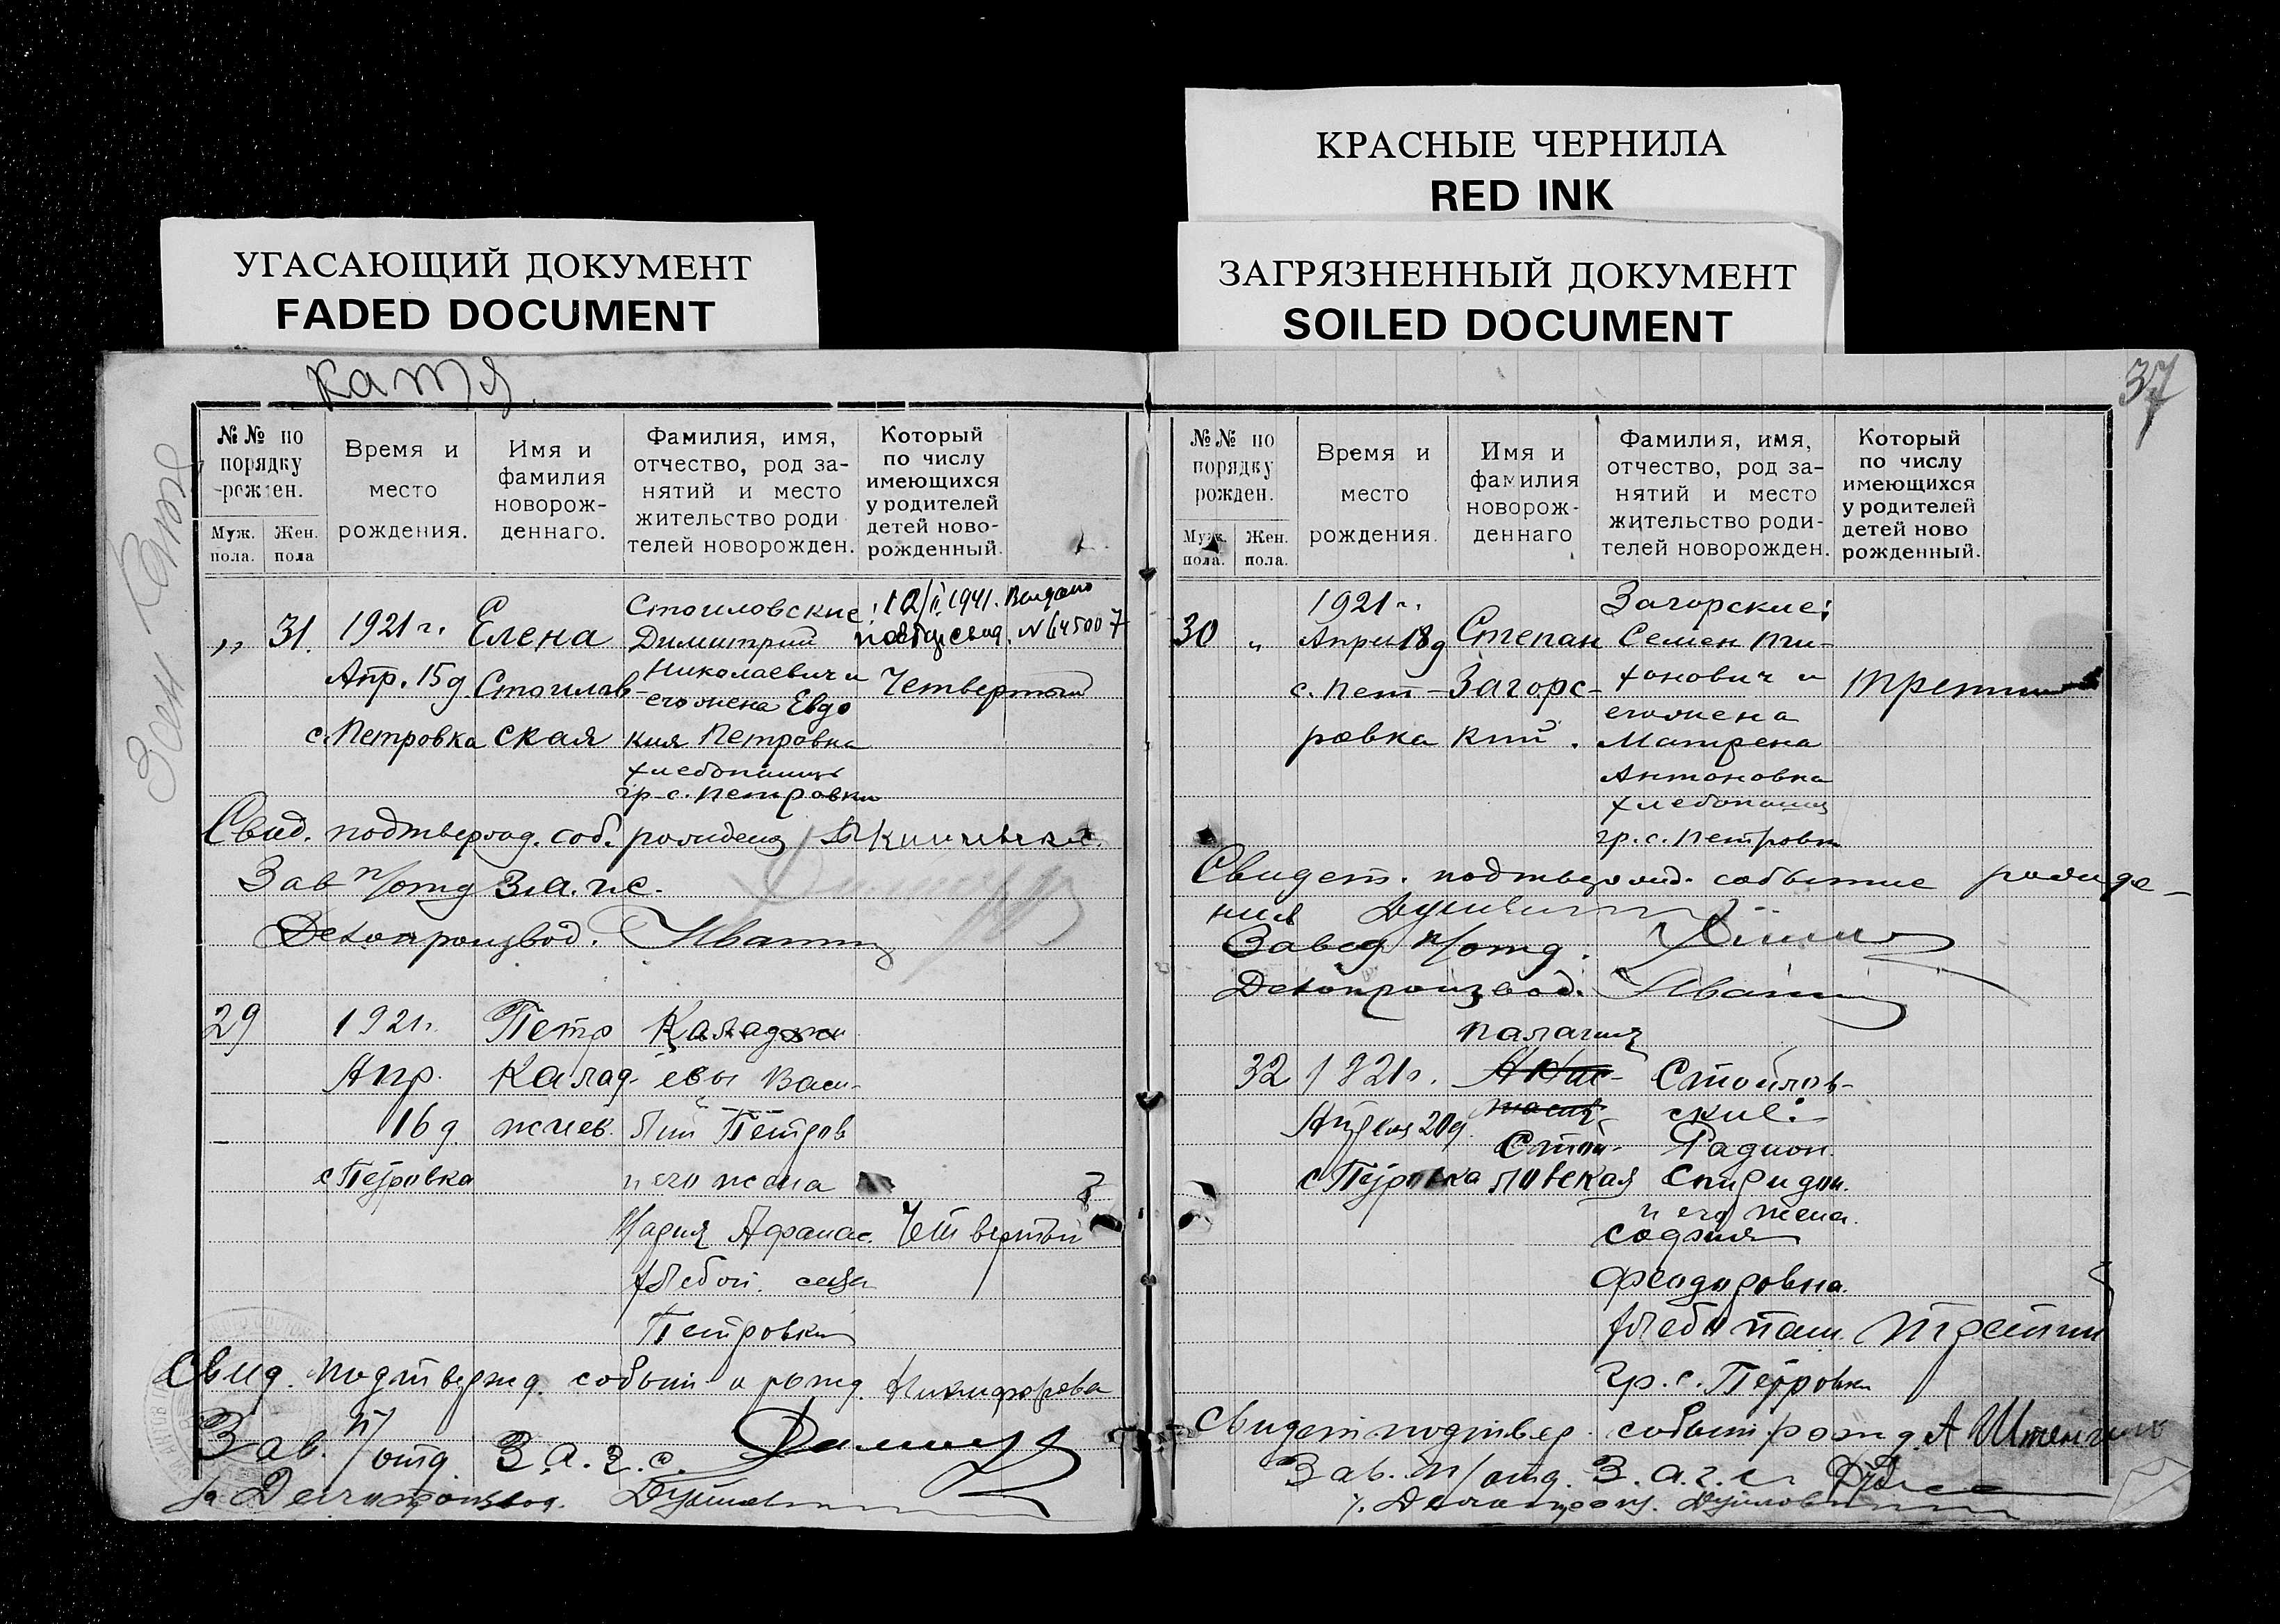 КРАСНЫЕ ЧЕРНИЛА
RED INK
УГАСАЮЩИЙ ДОКУМЕНТ
FADED DOCUMENT
ЗАГРЯЗНЕННЫЙ ДОКУМЕНТ
SOILED DOCUMENT
Катя
37
№№ по
порядку
рожден.
Муж.
пола.
Жен.
пола
Время и
место
рождения.
Имя и
фамилия
новорож-
деннаго.
Фамилия, имя,
отчество, род за-
нятий и место
жительство роди
телей новорожден.
Который
по числу
имеющихся
у родителей
детей ново-
рожденный.
„ 31.
1921 г.
Апр. 15 д
с. Петровка
Елена
Стоилов-
ская
Стоиловские:
Димитрий
Николаевич и
его жена Евдо
кия Петровна
хлебопашцы
гр. с. Петровки
12/II 1941. Выдано
повт. свид. № 645007
Четвертый
Свид. подтвержд. соб. рожден
Зав п/отд З.а.г.с.
Делопроизвод.
29
1921 г.
Апр.
16 д
с Петровка
Петр
Калад-
жиев.
Каладжи
евы Васи-
лий Петров
и его жена
Мария Афанас.
хлебоп. села
Петровки
Четвертый
Свид. подтвержд. событи о рожд. Никифорова
Зав. п/отд. З.а.г.с.
за Делопроизвод.
№№ по
порядку
рожден.
Муж.
пола.
Жен.
пола.
Время и
место
рождения.
Имя и
фамилия
новорож-
деннаго
Фамилия, имя,
отчество, род за-
нятий и место
жительство роди-
телей новорожден.
Который
по числу
имеющихся
у родителей
детей ново
рожденный.
30 „
1921 г.
Апрн 18 д
с. Пет-
ровка
Степан
Загорс-
кий.
Загорские:
Семен Ти-
хонович и
его жена
Матрена
Антоновна
хлебопашц
гр. с. Петровки
третий
Свидет. подтвержд. событие рожде-
ния
Завед п/отд.
Делопроизвод.
32
1921 г.
Апреля 20 д.
с Петровка
Палагия
Стои-
ловская
Стоилов-
ские:
Радион
Спиридон.
и его жена.
София
Феодоровна.
хлебопаш.
гр. с. Петровки
третий
Свидет подтвер. событ рожд.
Зав. п/отд. З.а.г.с.
з. Делопроиз.